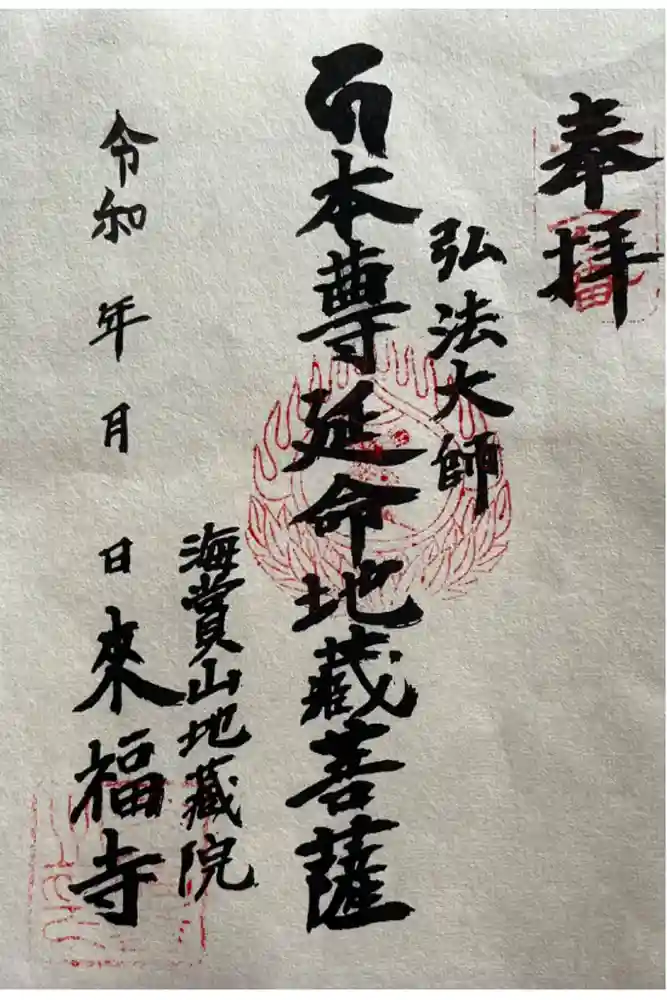 奉拝
弘法大師
本尊延命地藏菩薩
海賞山地藏院
令和 年 月 日
來福寺